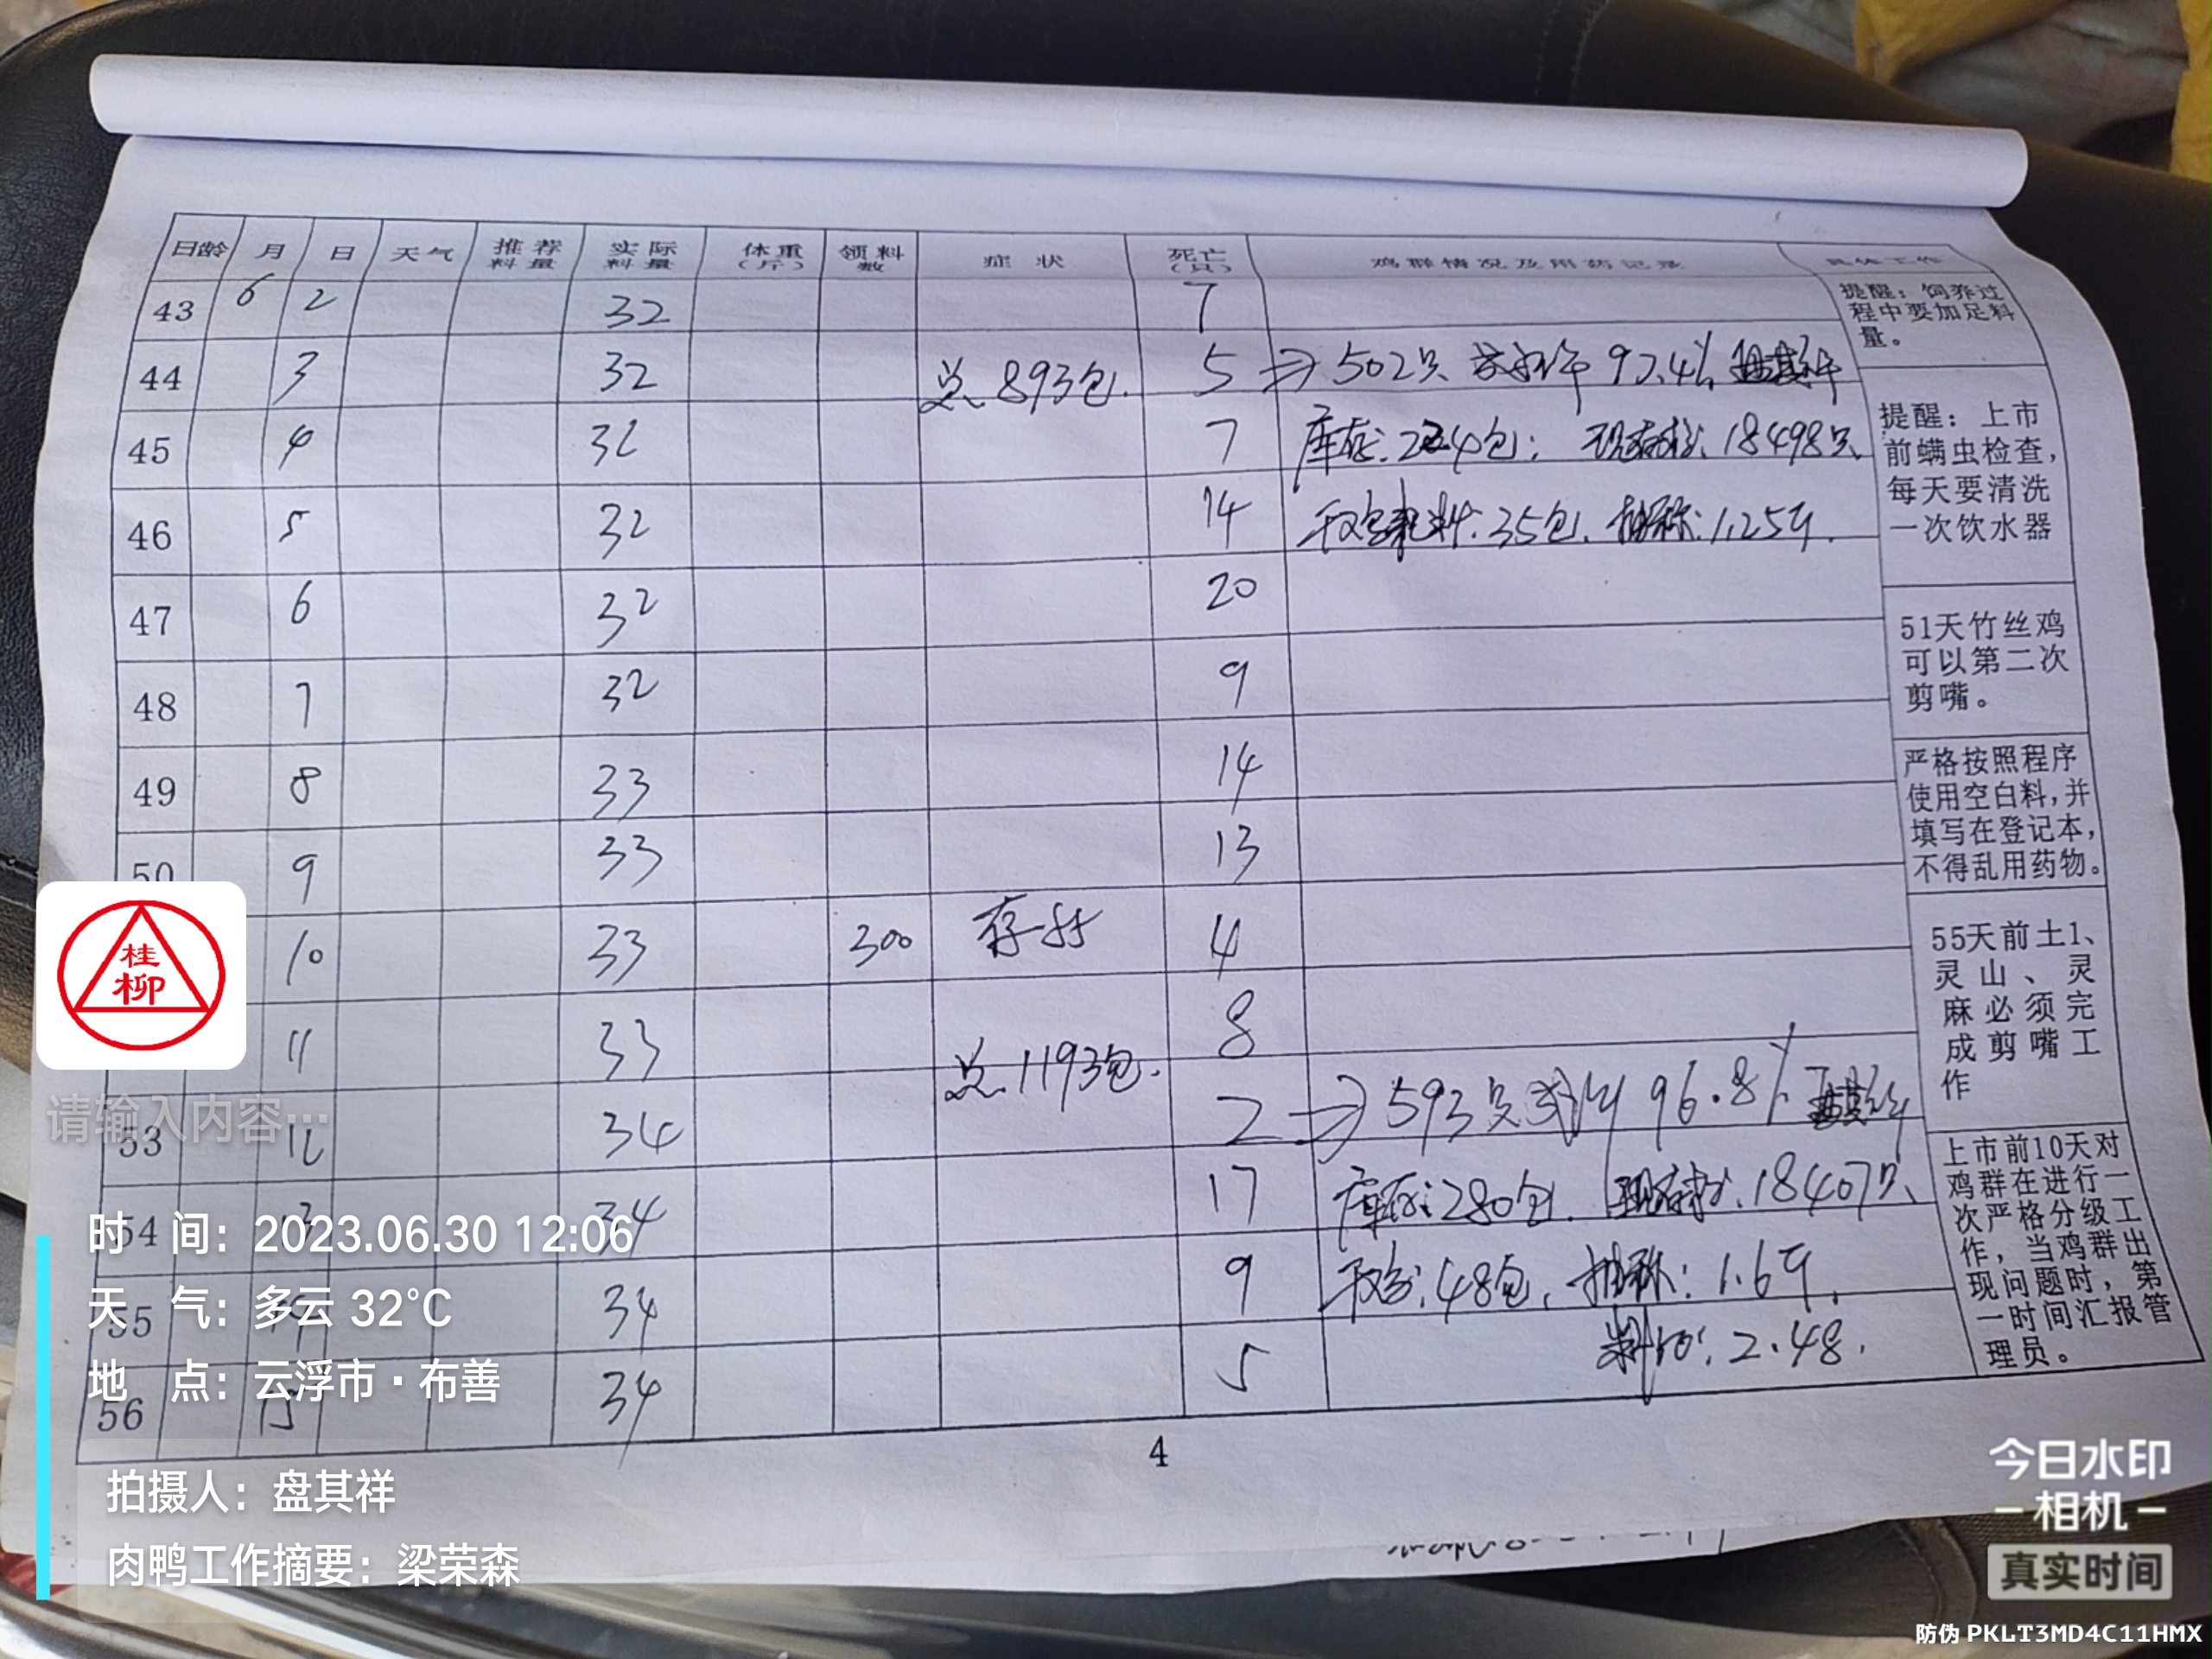 日龄 月 日 天气 推荐料量 实际料量 体重(斤) 领料数 症状 死亡(只) 鸡群情况及用药记录 具体工作
43 6 2 32 7
提醒：饲养过
程中要加足料
量。
44 3 32 总、893包. 5 ⇒ 502只 97.4%
45 4 32 7 库存：224包； 18498只
46 5 32 14 耗料：35包. 抽称：1.25斤.
提醒：上市
前螨虫检查,
每天要清洗
一次饮水器
47 6 32 20
48 7 32 9
51天竹丝鸡
可以第二次
剪嘴。
49 8 33 14
50 9 33 13
严格按照程序
使用空白料,并
填写在登记本,
不得乱用药物。
10 33 300 4
11 33 总、1193包. 8
53 12 34 2 ⇒ 593只 96.8%
55天前土1、
灵山、灵
麻必须完
成剪嘴工
作
54 13 34 17 库存：280包. 18407只
55 14 34 9 48包. 抽称：1.6斤.
56 15 34 5 料肉：2.48.
上市前10天对
鸡群在进行一
次严格分级工
作,当鸡群出
现问题时,第
一时间汇报管
理员。
4
桂
柳
请输入内容…
时 间：2023.06.30 12:06
天 气：多云 32℃
地 点：云浮市·布善
拍摄人：盘其祥
肉鸭工作摘要：梁荣森
今日水印
相机
真实时间
防伪 PKLT3MD4C11HMX